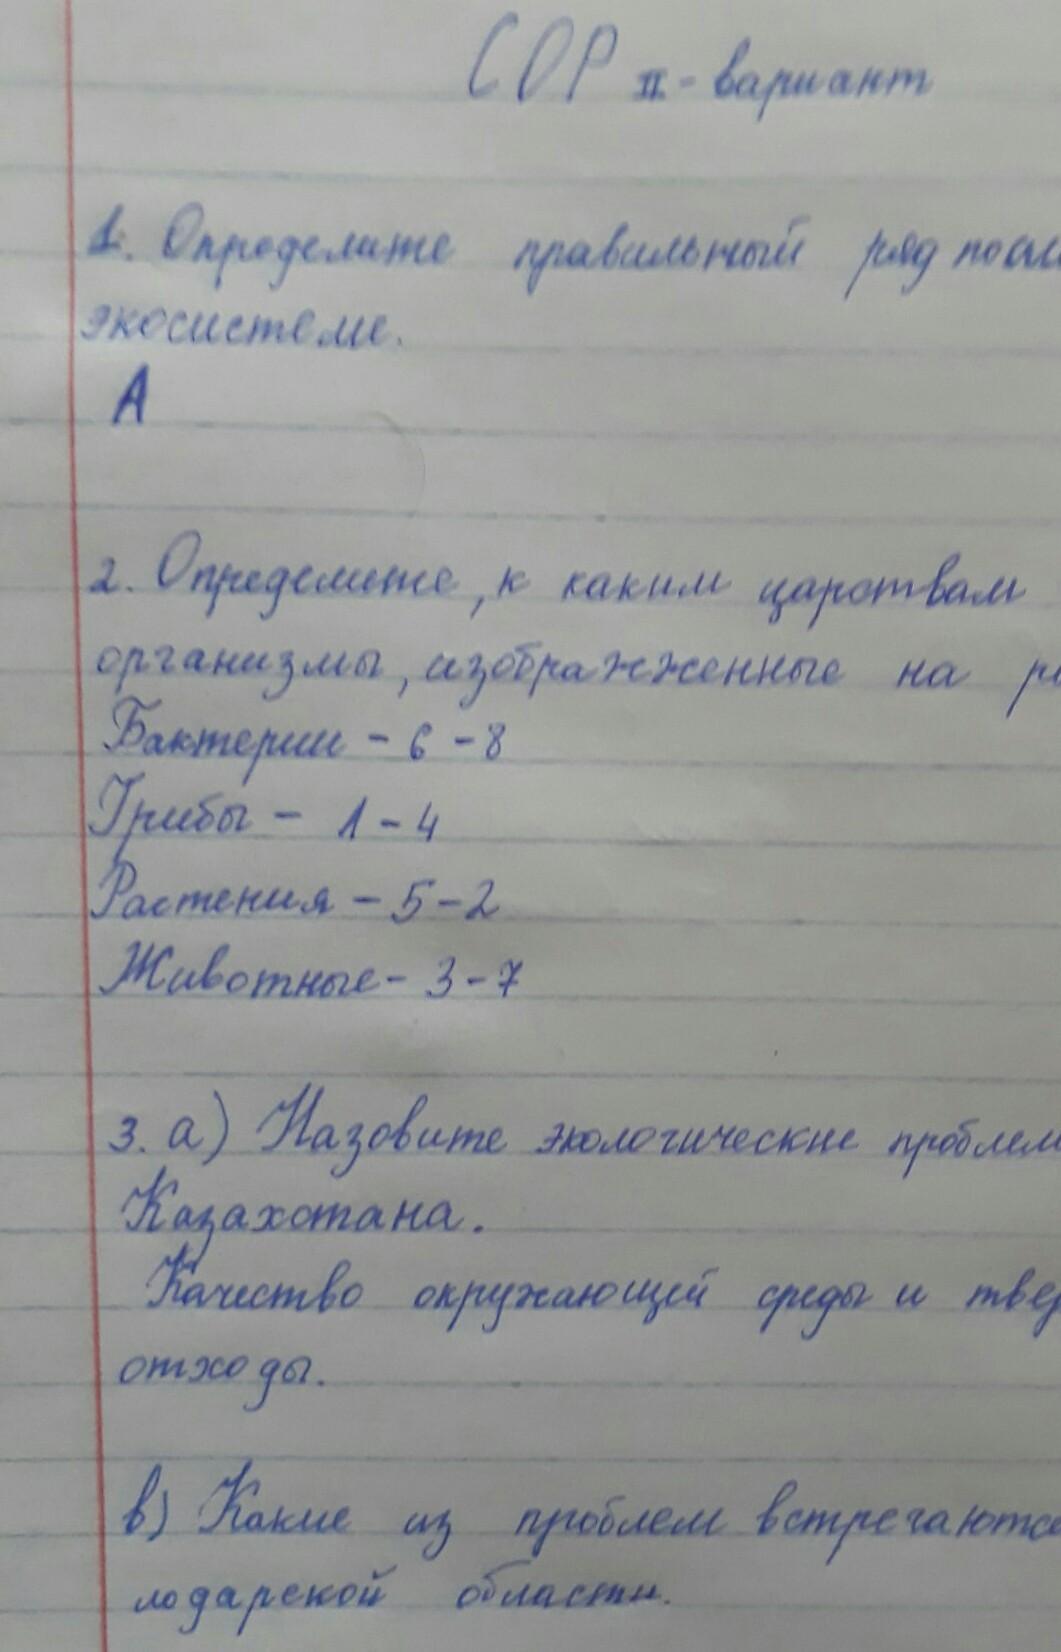 СОР II - вариант
1. Определите правильный ряд посл
экосистеме.
А
2. Определите, к каким царствам
организмы, изображженные на ри
Бактерии - 6 - 8
Грибы - 1 - 4
Растения - 5 - 2
Животные - 3 - 7
3. а) Назовите экологические проблем
Казахстана.
Качество окружающей среды и твер
отходы.
в) Какие из проблем встречаютс
лодарской области.